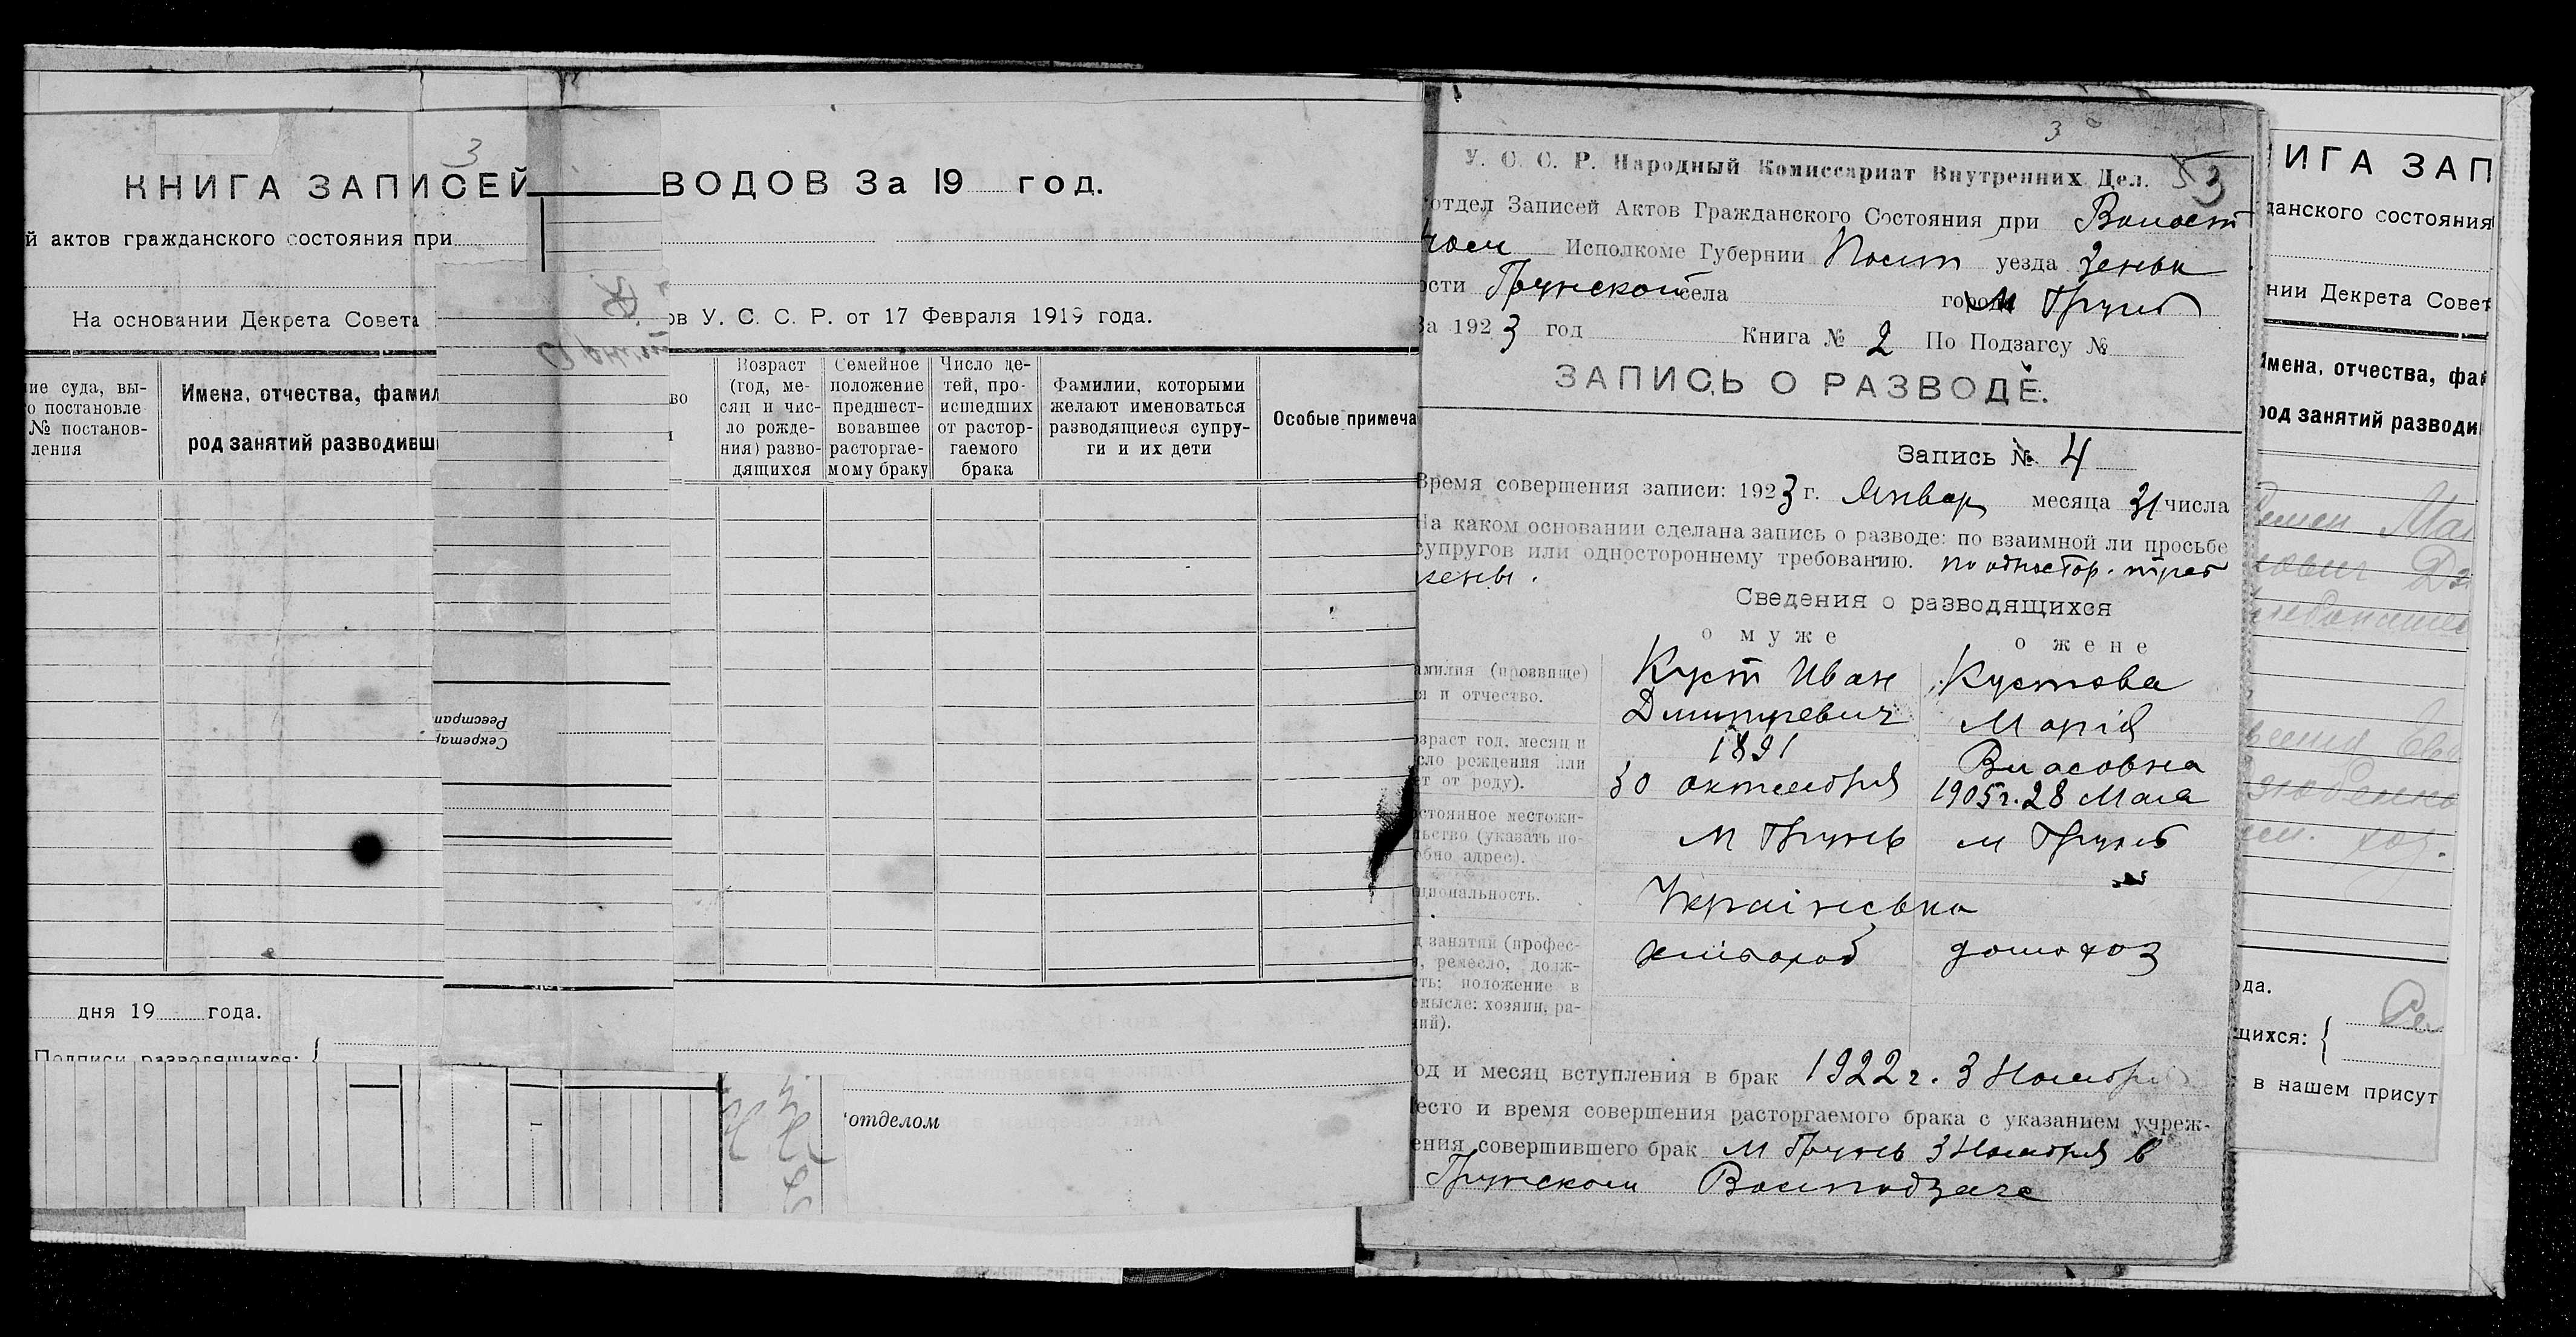 3
КНИГА ЗАПИСЕЙ ВОДОВ За 19 год.
й актов гражданского состояния при
На основании Декрета Совета ов У. С. С. Р. от 17 Февраля 1919 года.
ие суда, вы-
о постановле
№ постанов-
ления
Имена, отчества, фамил
род занятий разводивш
во
Возраст
(год, ме-
сяц и чис-
ло рожде-
ния) разво-
дящихся
Семейное
положение
предшест-
вовавшее
расторгае-
мому браку
Число де-
тей, про-
исшедших
от растор-
гаемого
брака
Фамилии, которыми
желают именоваться
разводящиеся супру-
ги и их дети
Особые примеча
Реестрац
Секретар
дня 19 года.
Подписи разводящихся:
отделом
3
У. С. С. Р. Народный Комиссариат Внутренних Дел. 53
отдел Записей Актов Гражданского Состояния при Волост
ном Исполкоме Губернии Полт уезда Зеньк
ости Грунской села города М Грунь
За 1923 год Книга № 2 По Подзагсу №
ЗАПИСЬ О РАЗВОДЕ.
Запись № 4
Время совершения записи: 1923 г. Январ месяца 31 числа
На каком основании сделана запись о разводе: по взаимной ли просьбе
супругов или одностороннему требованию. по одностор. треб
жены.
Сведения о разводящихся
о муже о жене
амилия (прозвище)
я и отчество.
Куст Иван
Дмитриевич
Кустова
Марія
Власовна
зраст год, месяц и
сло рождения или
т от роду).
1891
30 октября
1905 г. 28 Мая
стоянное местожи-
льство (указать по-
обно адрес).
М Грунь м Грунь
циональность.
Українська
д занятий (профес-
, ремесло, долж-
ть; положение в
омысле: хозяин, ра-
ий).
хлібороб домохоз
од и месяц вступления в брак 1922 г. 3 Ноября
есто и время совершения расторгаемого брака с указанием учреж-
ения совершившего брак М Грунь 3 Ноября в
Грунском Волподзагсе
ИГА ЗАП
данского состояния
нии Декрета Совет
Имена, отчества, фам
род занятий разводи
ода.
щихся:
в нашем присут